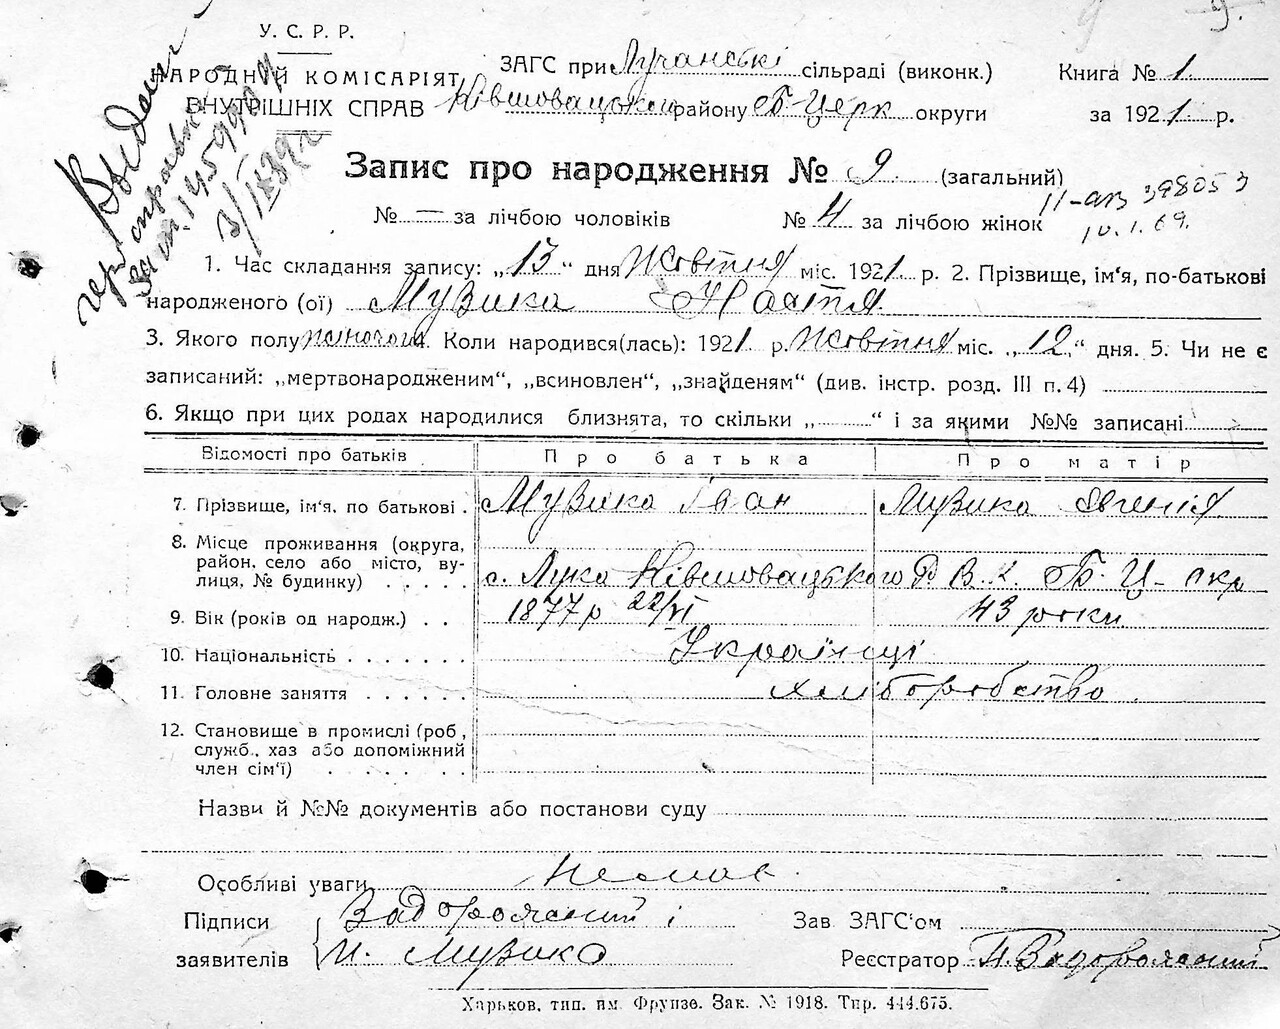 У. С. Р. Р.
НАРОДНИЙ КОМІСАРІЯТ
ВНУТРІШНІХ СПРАВ
ЗАГС при Лучанські сільраді (виконк.)
Ківшовацьком району Б-Церк округи
Книга № 1.
за 1921 р.
Запис про народження № 9 (загальний)
№ — за лічбою чоловіків № 4 за лічбою жінок
ІІ-АВ 398053
10.1.69.
1. Час складання запису: „13“ дня Жовтня міс. 1921 р. 2. Прізвище, ім'я, по-батькові
народженого (ої) Музика Настя
3. Якого полу жіночого 4. Коли народився(лась): 1921 р. Жовтня міс. „12„“ дня. 5. Чи не є
записаний: „мертвонародженим“, „всиновлен“, „знайденям“ (див. інстр. розд. III п. 4)
6. Якщо при цих родах народилися близнята, то скільки „ “ і за якими №№ записані
Відомості про батьків Про батька Про матір
7. Прізвище, ім'я, по батькові . Музика Іван Музика Євгенія
8. Місце проживання (округа,
район, село або місто, ву-
лиця, № будинку) . . . . с. Лука Ківшовацького Б. Ц- окр
9. Вік (років од народж.) . . 1877 р 22/VI 43 роки
10. Національність . . . . . . . Українці
11. Головне заняття . . . . . . хліборобство
12. Становище в промислі (роб,
служб., хаз або допоміжний
член сім'ї) . . . . . . .
Назви й №№ документів або постанови суду
Особливі уваги Немає
Підписи Задорожний і Зав ЗАГС'ом
заявителів И. Музика Реєстратор П. Задорожний
Харьков, тип. им. Фрунзе. Зак. № 1918. Тир. 444.675.